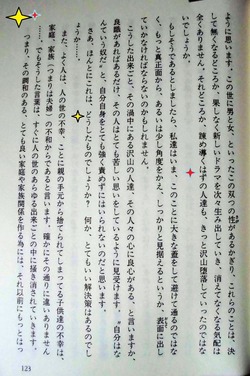 ように思います。この世に男と女、といったこの双つの性があるかぎり、これらのことは、決
して無くなるどころか、果しなく新しいドラマを次々生み出していき、消えてなくなる気配は
全くありません。それどころか、諫め導くはずの人達も、きっと沢山堕落していったのではな
いでしょうか。
もしそうであるとしましたら、私達はいま、このことに大きな蓋をして避けて通るのではな
く、もっと真正面から、あるいは少し角度をかえ、しっかりと見据えるというか、表面に出し
ていかなければならないのかもしれません。
こうした出来ごと、その渦中にある沢山の人達、その人々の心に良心がある、と言いますか、
良識があればあるだけ、その人はとても苦しい思いをしているように見受けます。〝自分はな
んていう奴だ〟と、自分自身をとても強く責めずにはいられないのだと思います。
さあ、ほんとにこれは、どうしたものでしょうか？　何か、とてもいい解決策はあるのでし
ょうか……。
また、よく人は、人の世の不幸、ことに親の手元から捨てられてしまってる子供達の不幸は、
家庭、家族（つまりは夫婦）の不和からであると言います　確かにその通りに違いありません
……。でもそうした言葉は、すぐに人の世のあらゆる出来ごとの中に掻き消されていきます。
つまり、その調和のある、とても良い家庭や家族関係を作る為には、それ以前にもっとはっ
123